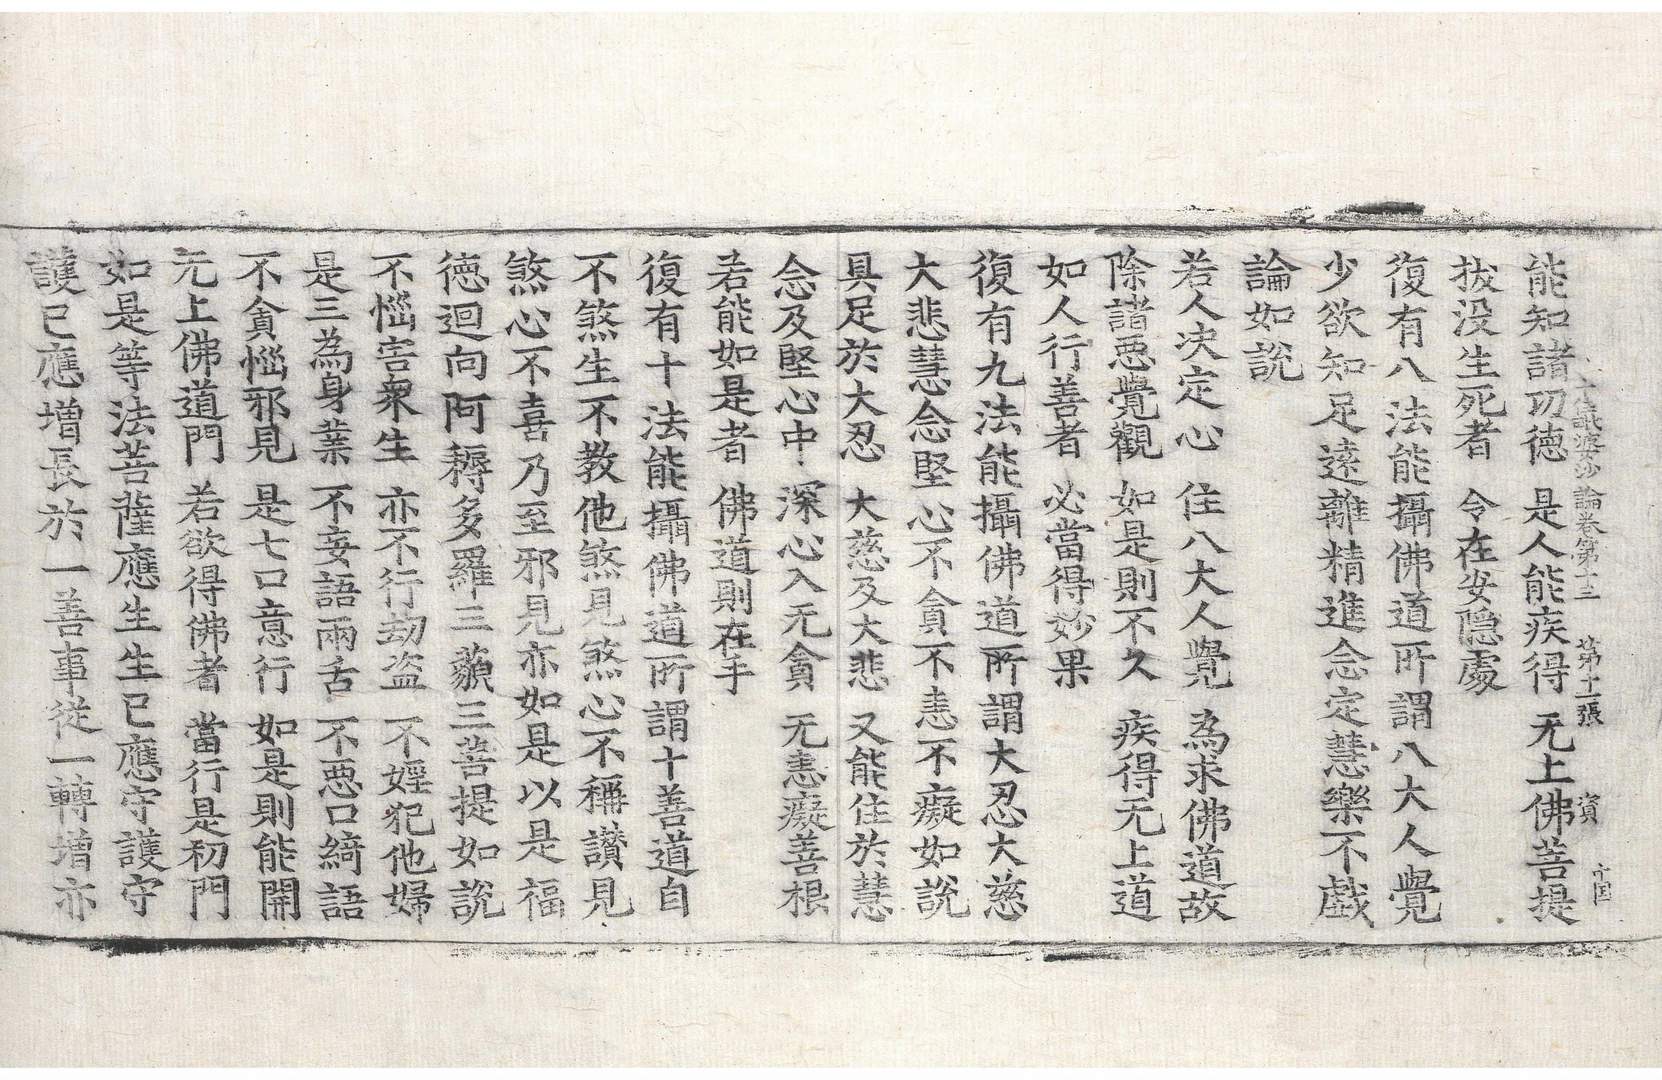 能知諸功德　是人能疾得　无上佛菩提
十住毗婆沙論卷第十三　第十二張　資
拔没生死者　令在安隱處
復有八法能攝佛道所謂八大人覺
少欲知足遠離精進念定慧樂不戲
論如說
若人决定心　住八大人覺　為求佛道故
除諸惡覺觀　如是則不久　疾得无上道
如人行善者　必當得妙果
復有九法能攝佛道所謂大忍大慈
大悲慧念堅心不貪不恚不癡如說
具足於大忍　大慈及大悲　又能住於慧
念及堅心中　深心入无貪　无恚癡善根
若能如是者　佛道則在手
復有十法能攝佛道所謂十善道自
不煞生不教他煞見煞心不稱讃見
煞心不喜乃至邪見亦如是以是福
德迴向阿耨多羅三藐三菩提如說
不惱害衆生　亦不行劫盜　不婬犯他婦
是三為身業　不妄語兩舌　不惡口綺語
不貪惱邪見　是七口意行　如是則能開
无上佛道門　若欲得佛者　當行是初門
如是等法菩薩應生生已應守護守
護已應增長於一善事從一轉增亦